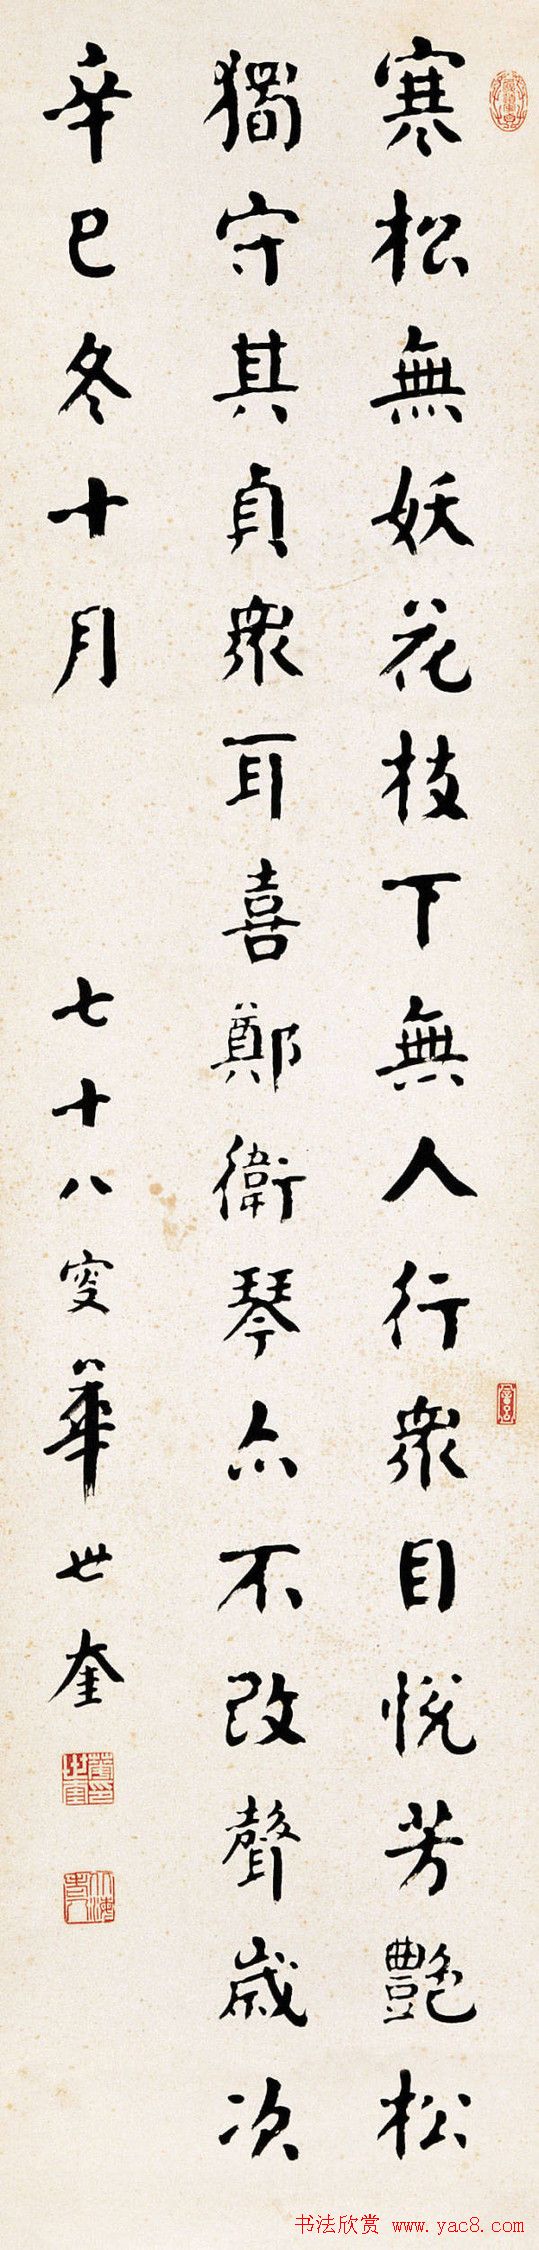 寒松無妖花枝下無人行衆目悅芳艷松
獨守其貞衆耳喜鄭衛琴亦不改聲歲次
辛巳冬十月
七十八叟華世奎
书法欣赏 www.yac8.com